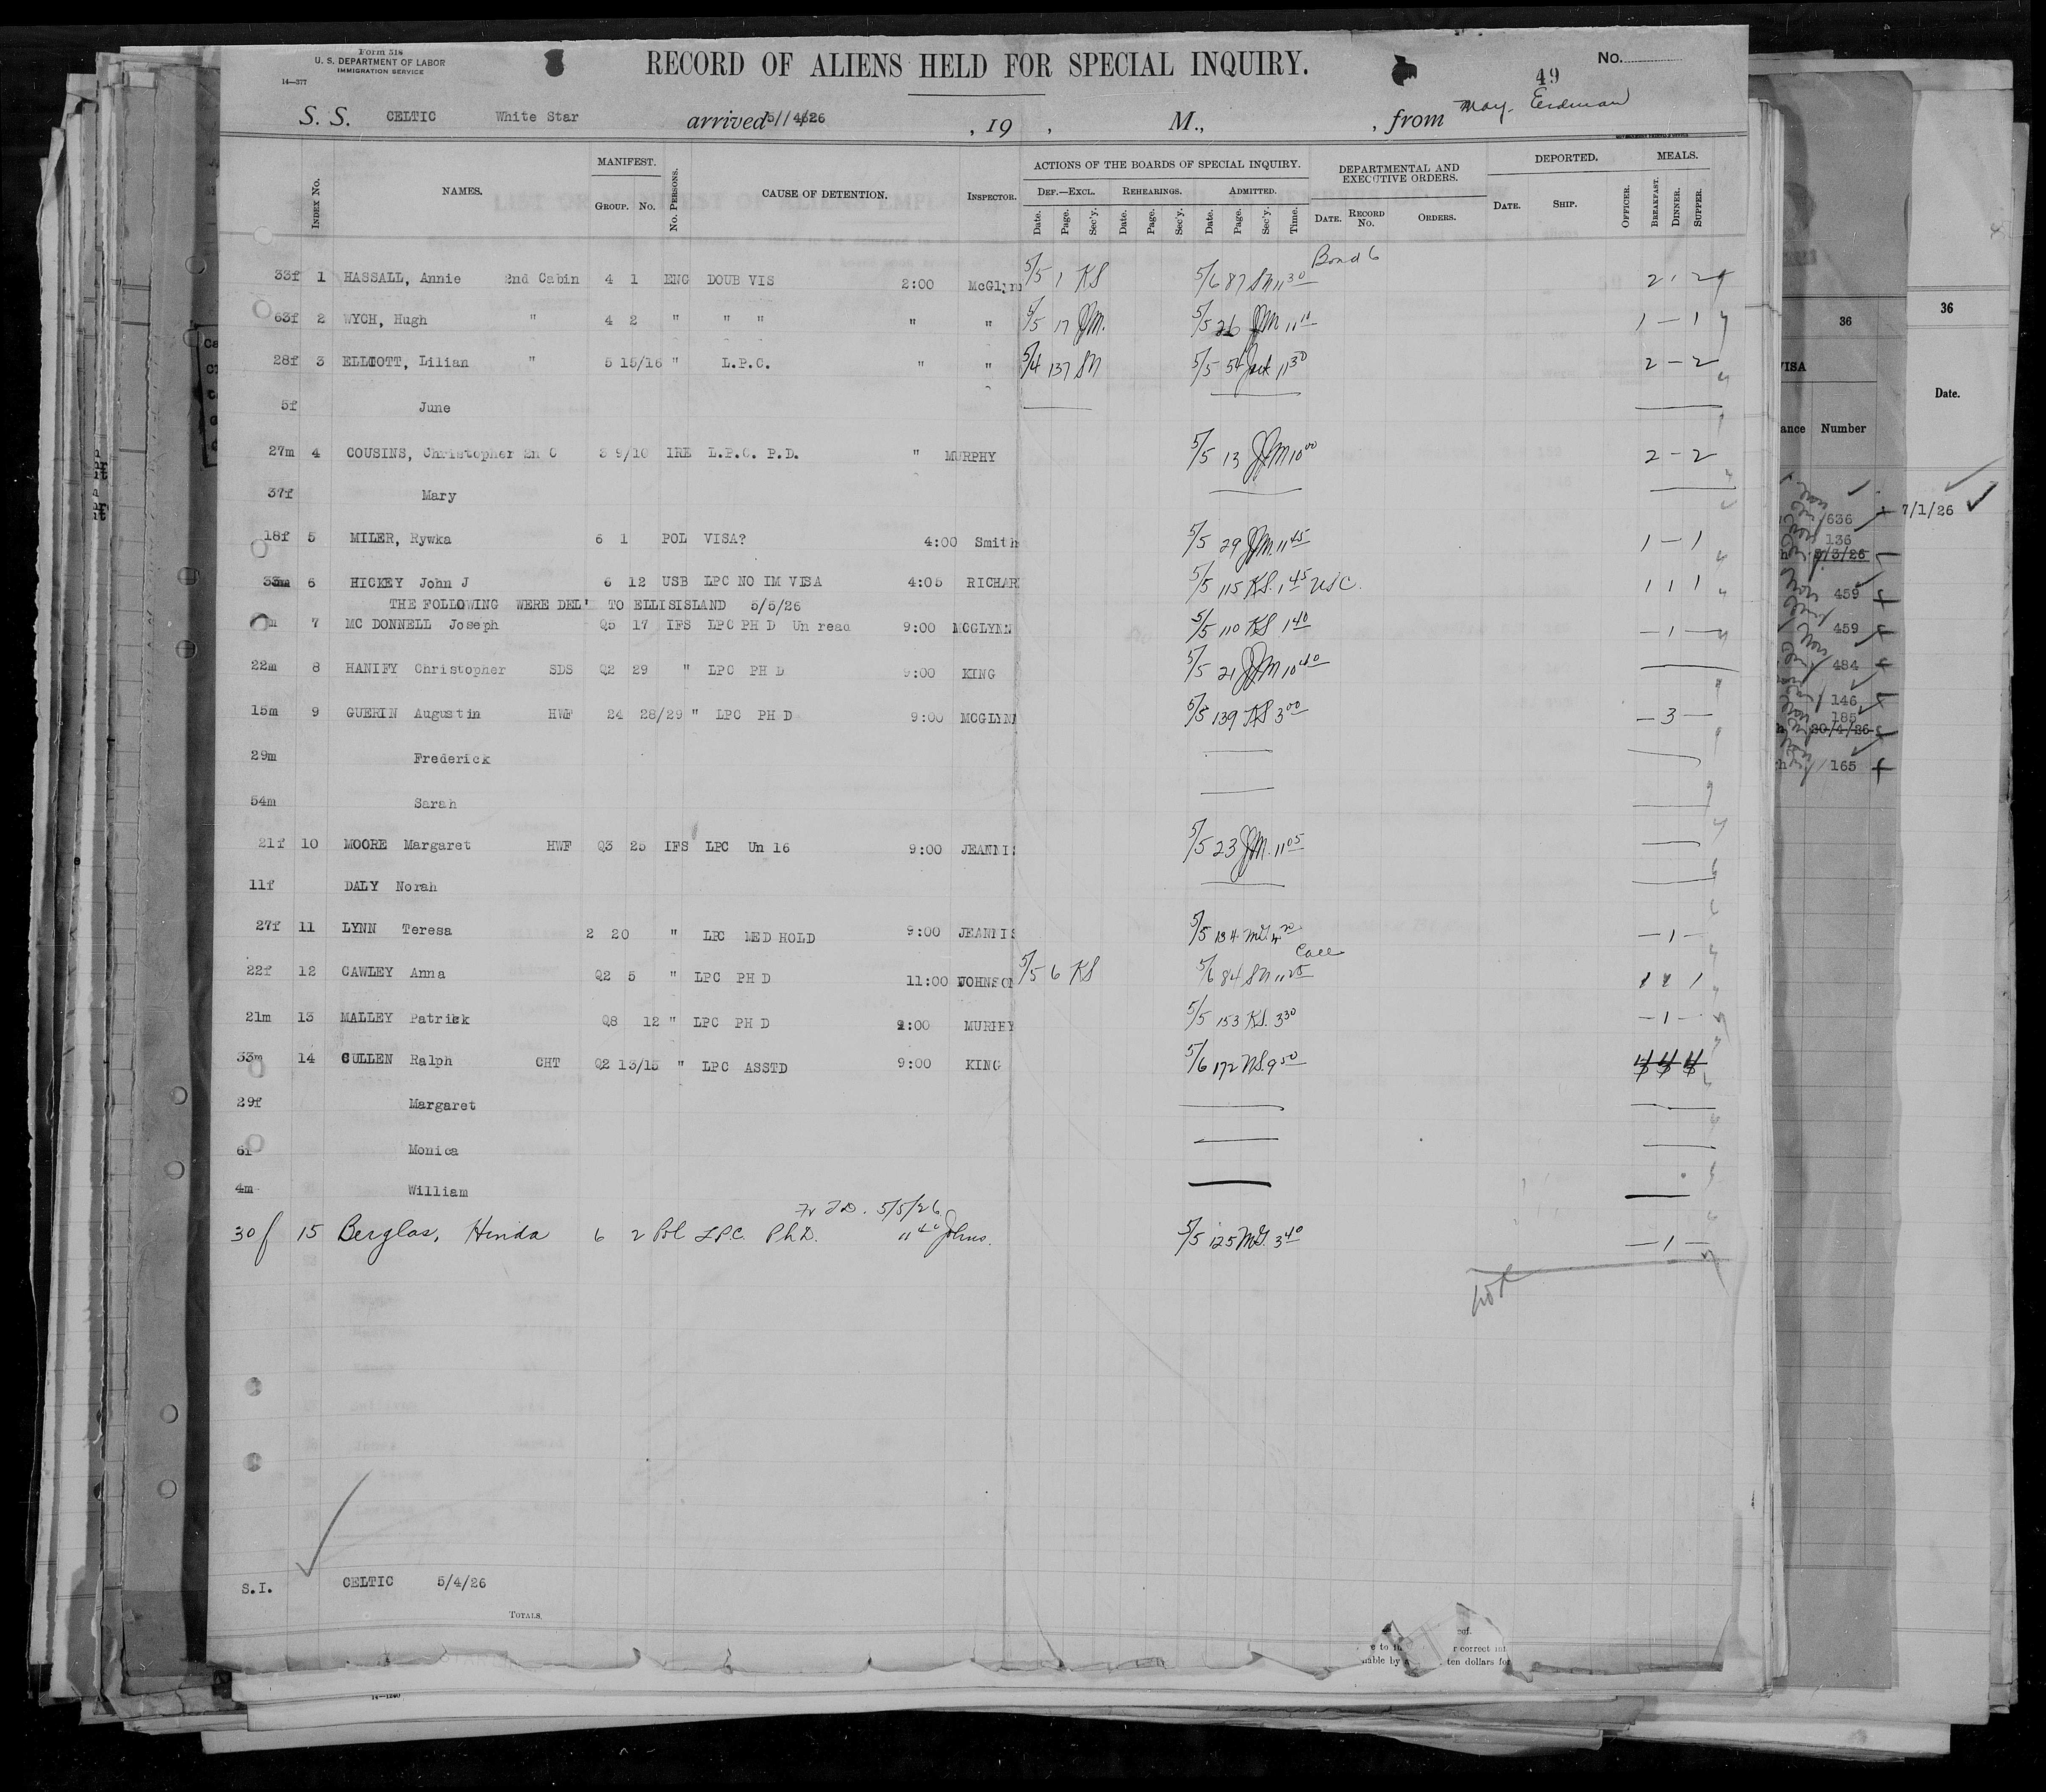 Form 518
U. S. DEPARTMENT OF LABOR
IMMIGRATION SERVICE
14—377
RECORD OF ALIENS HELD FOR SPECIAL INQUIRY.
No.
49
S. S. CELTIC White Star arrived 5//4/26 , 19 , M., , from May. Erdman
INDEX No. NAMES. MANIFEST. GROUP. No. No. PERSONS. CAUSE OF DETENTION. INSPECTOR. ACTIONS OF THE BOARDS OF SPECIAL INQUIRY. DEPARTMENTAL AND EXECUTIVE ORDERS. DEPORTED. MEALS.
DEF.—EXCL. REHEARINGS. ADMITTED.
Date. Page. Sec'y. Date. Page. Sec'y. Date. Page. Sec'y. Time. DATE. RECORD No. ORDERS. DATE. SHIP. OFFICER. BREAKFAST. DINNER. SUPPER.
Bond 6
33f 1 HASSALL, Annie 2nd Cabin 4 1 ENG DOUB VIS 2:00 McGlynn 5/5 1 KS 5/6 87 SN 11 30 2 1 2
63f 2 WYCH, Hugh " 4 2 " " " " " 5/5 17 JJM. 5/5 26 JJM 11 10 1 — 1
28f 3 ELLIOTT, Lilian " 5 15/16 " L.P.C. " " 5/4 137 SN 5/5 54 11 30 2 — 2
5f June
27m 4 COUSINS, Christopher 2n C 3 9/10 IRE L.P.C. P.D. " MURPHY 5/5 13 JJM 10 00 2 — 2
37f Mary
18f 5 MILER, Rywka 6 1 POL VISA? 4:00 Smith 5/5 29 JJM 11 45 1 — 1
33m 6 HICKEY John J 6 12 USB LPC NO IM VISA 4:05 RICHAR 5/5 115 KS. 1 45 USC. 1 1 1
THE FOLLOWING WERE DEL' TO ELLISISLAND 5/5/26
m 7 MC DONNELL Joseph Q5 17 IFS LPC PH D Un read 9:00 MCGLYNN 5/5 110 KS 1 40 — 1 —
22m 8 HANIFY Christopher SDS Q2 29 " LPC PH D 9:00 KING 5/5 21 JJM 10 40
15m 9 GUERIN Augustin HWF 24 28/29 " LPC PH D 9:00 MCGLYNN 5/5 139 KS 3 00 — 3 —
29m Frederick
54m Sarah
21f 10 MOORE Margaret HWF Q3 25 IFS LPC Un 16 9:00 JEANNIS 5/5 23 JJM. 11 05
11f DALY Norah
27f 11 LYNN Teresa 2 20 " LPC MED HOLD 9:00 JEANNIS 5/5 134 — 1 —
22f 12 CAWLEY Anna Q2 5 " LPC PH D 11:00 JOHNSON 5/5 6 KS 5/6 84 SN 11 25 1 1 1
21m 13 MALLEY Patrick Q8 12 " LPC PH D 9:00 MURPHY 5/5 153 KS. 3 30 — 1 —
33m 14 CULLEN Ralph CHT Q2 13/15 " LPC ASSTD 9:00 KING 5/6 172 NS. 9 50
29f Margaret
6f Monica
4m William
Fr TD. 5/5/26
30 f 15 Berglas, Hinda 6 2 Pol LPC. Ph D. 11 40 Johns. 5/5 125 3 40 — 1 —
S.I. CELTIC 5/4/26
TOTALS.
14—1240
36
36
VISA
Date.
Number
7/1/26
636
136
3/3/26
459
459
484
146
185
30/4/26
165
correct
ten dollars for